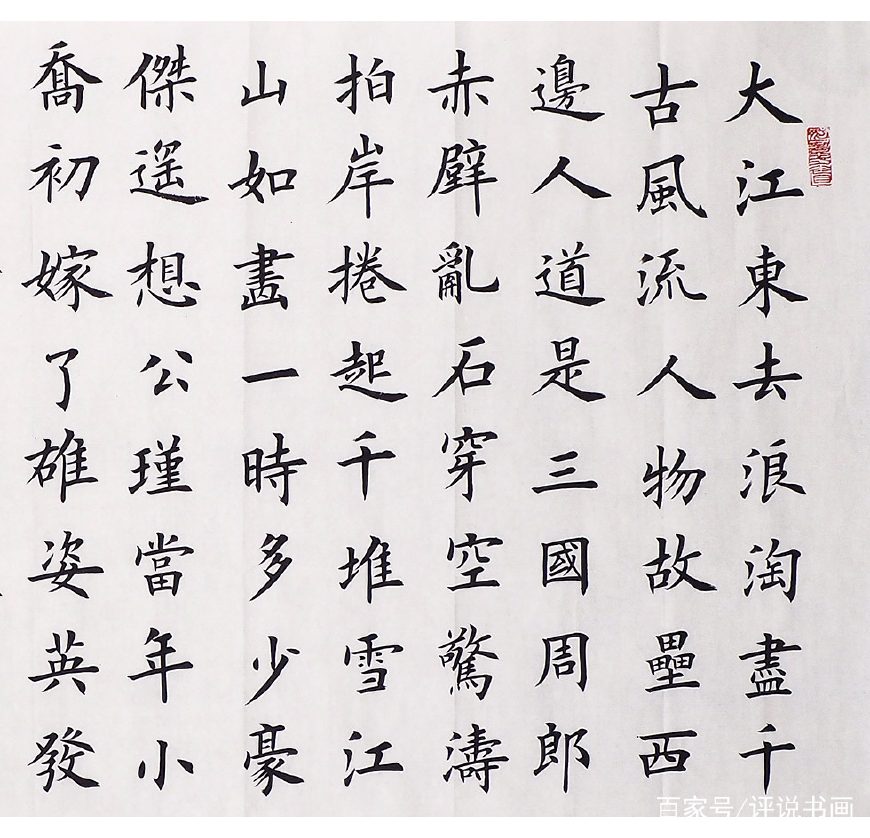 大江東去浪淘盡千
古風流人物故壘西
邊人道是三國周郎
赤壁亂石穿空驚濤
拍岸捲起千堆雪江
山如畫一時多少豪
傑遥想公瑾當年小
喬初嫁了雄姿英發
百家号/评说书画